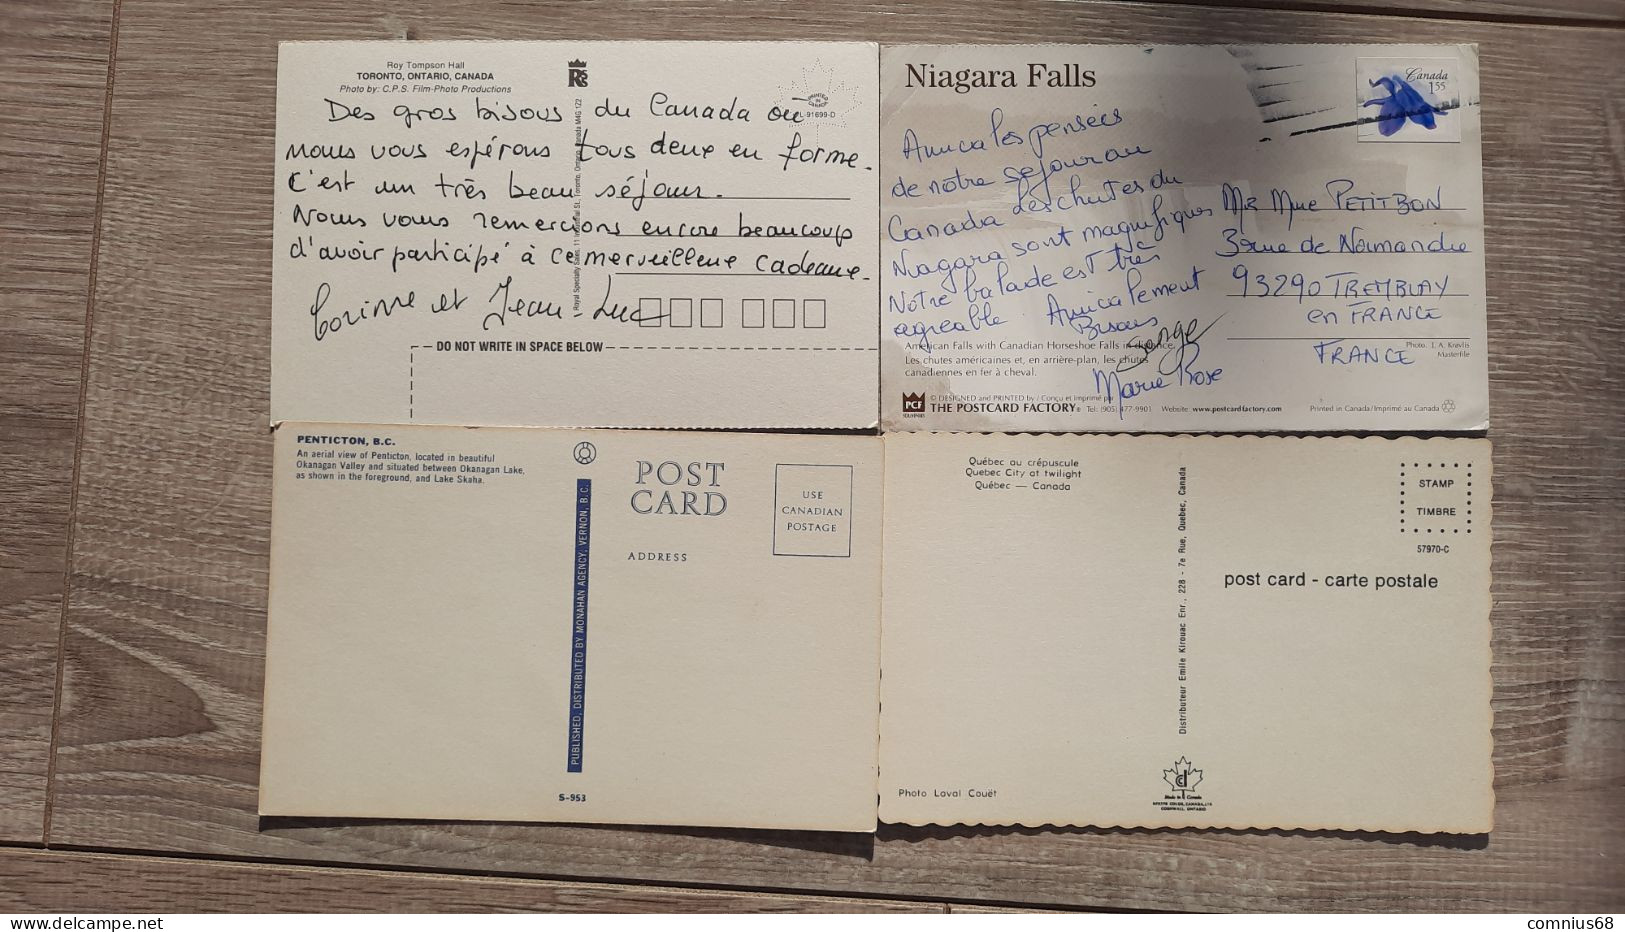 Roy Tompson Hall
TORONTO, ONTARIO, CANADA
Photo by: C.P.S. Film-Photo Productions
PRINTED IN CANADA
L-91699-D
Des gros bisous du Canada ou
nous vous espérons tous deux en forme.
C'est un très beau séjour.
Nous vous remercions encore beaucoup
d'avoir participé à ce merveilleux cadeau.
Corinne et Jean-Luc
Royal Specialty Sales, 11 Industrial St., Toronto, Ontario, Canada M4G 1Z2
DO NOT WRITE IN SPACE BELOW
Niagara Falls
Canada
1.55
Amicales pensées
de notre séjour au
Canada les chutes du
Niagara sont magnifiques
Notre balade est très
agréable. Amicalement
Bisous
Serge
Marie Rose
Mr Mme PETITBON
3 rue de Normandie
93290 TREMBLAY
en FRANCE
FRANCE
American Falls with Canadian Horseshoe Falls in distance.
Les chutes américaines et, en arrière-plan, les chutes
canadiennes en fer à cheval.
Photo. J. A. Kraulis
Masterfile
PCF
SOUVENIRS
© DESIGNED and PRINTED by / Conçu et imprimé par
THE POSTCARD FACTORY® Tel: (905) 477-9901 Website: www.postcardfactory.com
Printed in Canada/Imprimé au Canada
PENTICTON, B.C.
An aerial view of Penticton, located in beautiful
Okanagan Valley and situated between Okanagan Lake,
as shown in the foreground, and Lake Skaha.
POST
CARD
ADDRESS
USE
CANADIAN
POSTAGE
PUBLISHED, DISTRIBUTED BY MONAHAN AGENCY, VERNON, B.C.
S-953
Québec au crépuscule
Quebec City at twilight
Québec — Canada
STAMP
TIMBRE
57970-C
post card - carte postale
Distributeur Emile Kirouac Enr., 228 - 7e Rue, Quebec, Canada
Photo Laval Couët
Made in Canada
CORNWALL, ONTARIO
comnius68